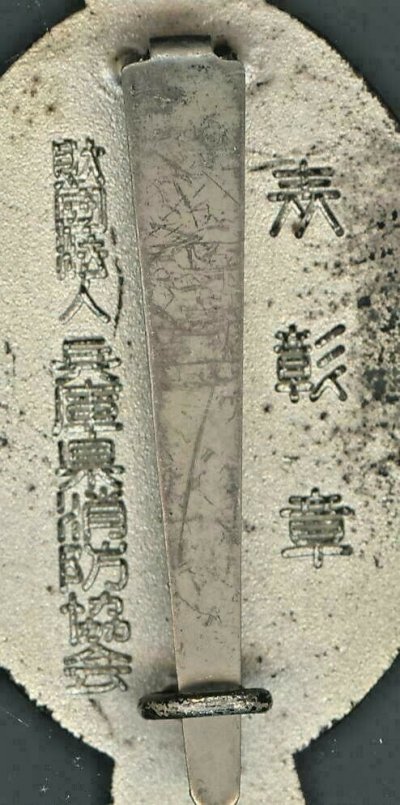 表彰章
財団法人兵庫県消防協会